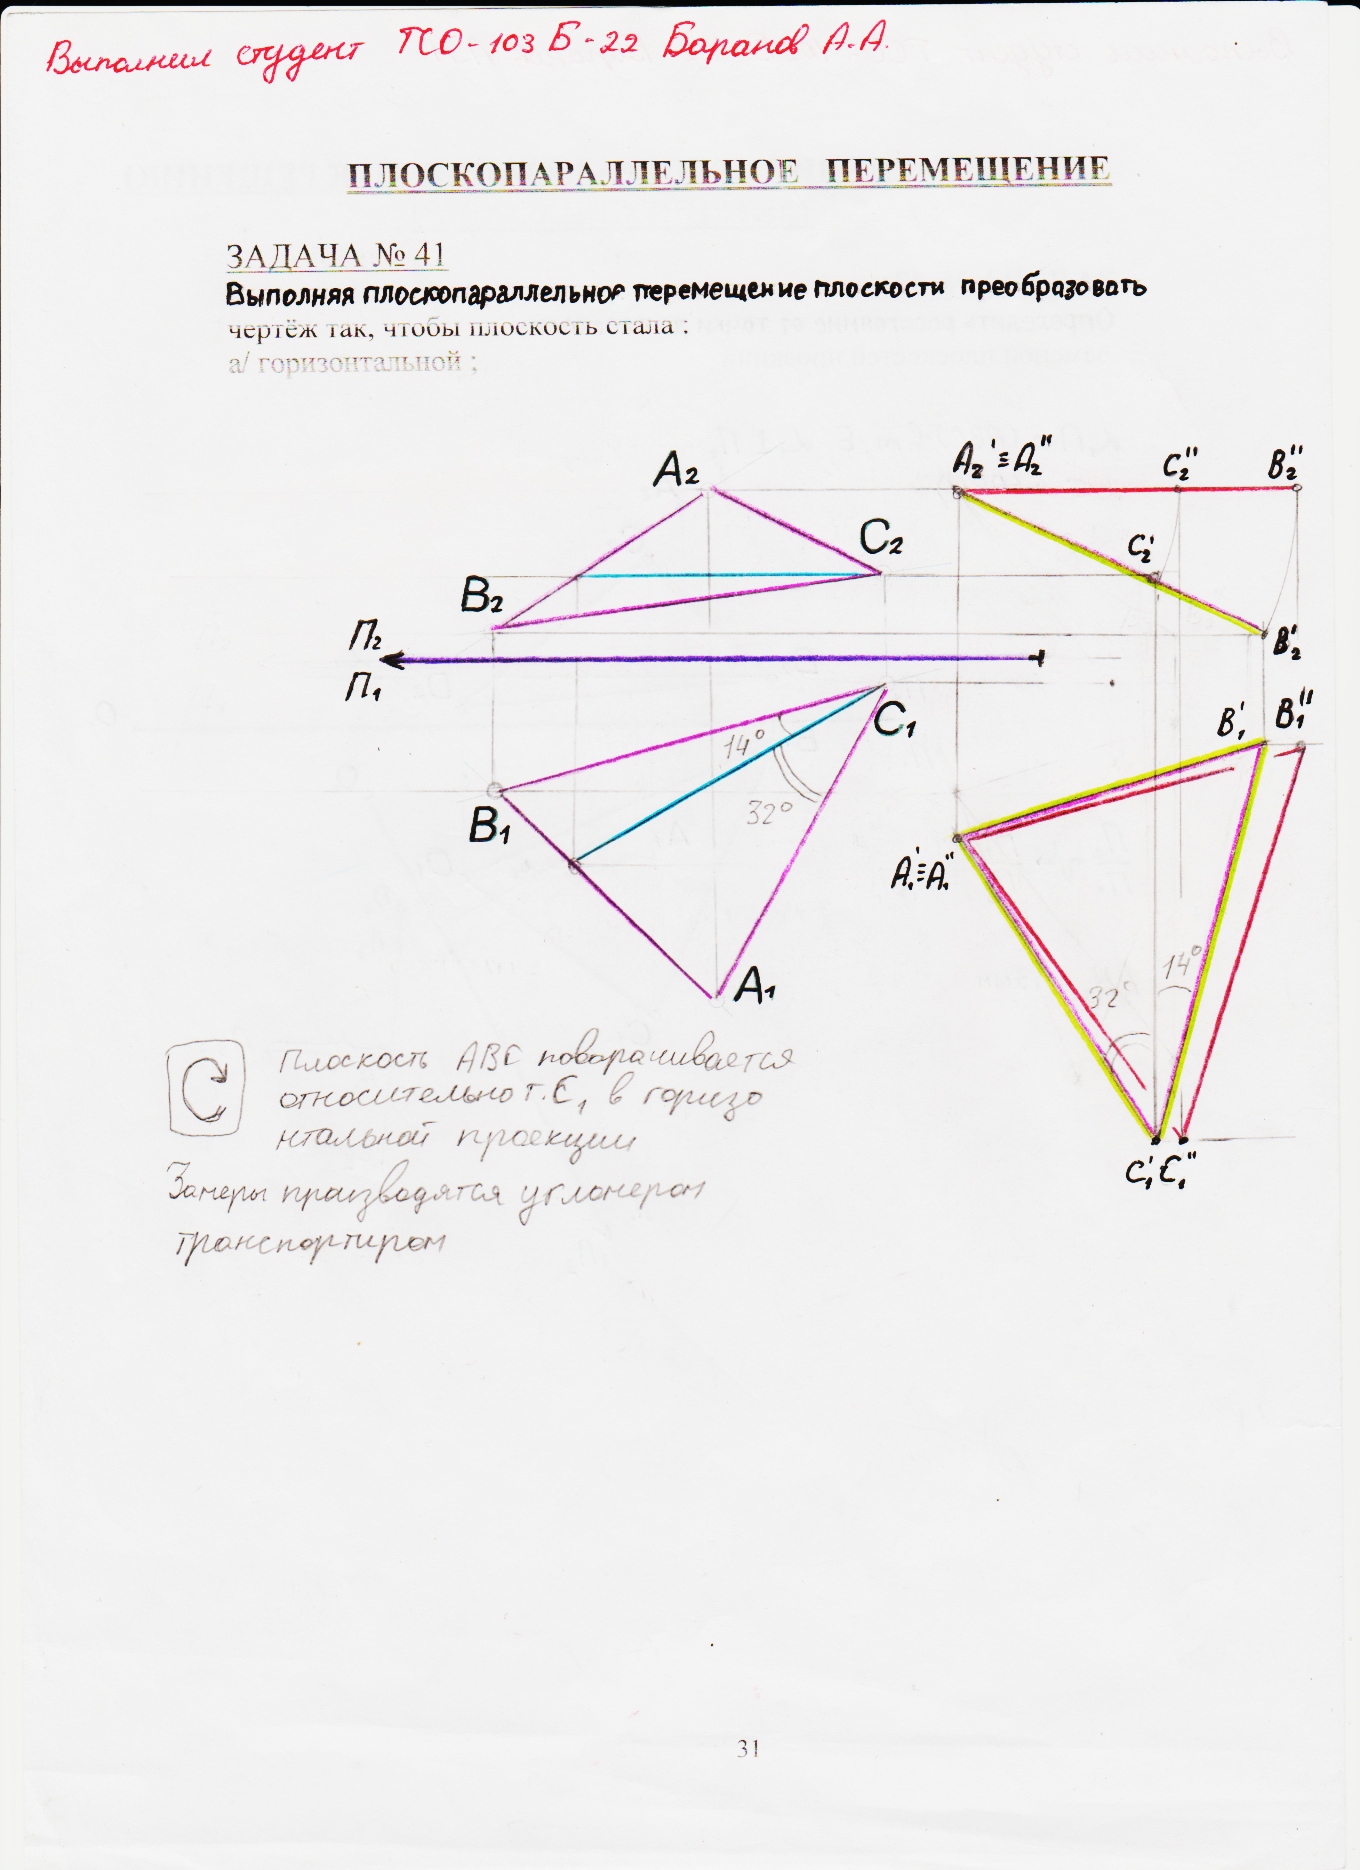 Выполнил студент ТСО-103 Б-22 Баранов А.А.
ПЛОСКОПАРАЛЛЕЛЬНОЕ ПЕРЕМЕЩЕНИЕ
ЗАДАЧА № 41
Выполняя плоскопараллельное перемещение плоскости преобразовать
чертёж так, чтобы плоскость стала :
а/ горизонтальной ;
A₂ A₂'≡A₂'' C₂'' B₂''
C₂ C₂'
B₂
П₂ B₂'
П₁
C₁ B₁' B₁''
14°
32°
B₁
A₁'≡A₁''
A₁ 14°
32°
C₁' C₁''
Плоскость ABC поворачивается
относительно т. C₁ в горизо
нтальной проекции
Замеры производятся угломером
транспортиром
31